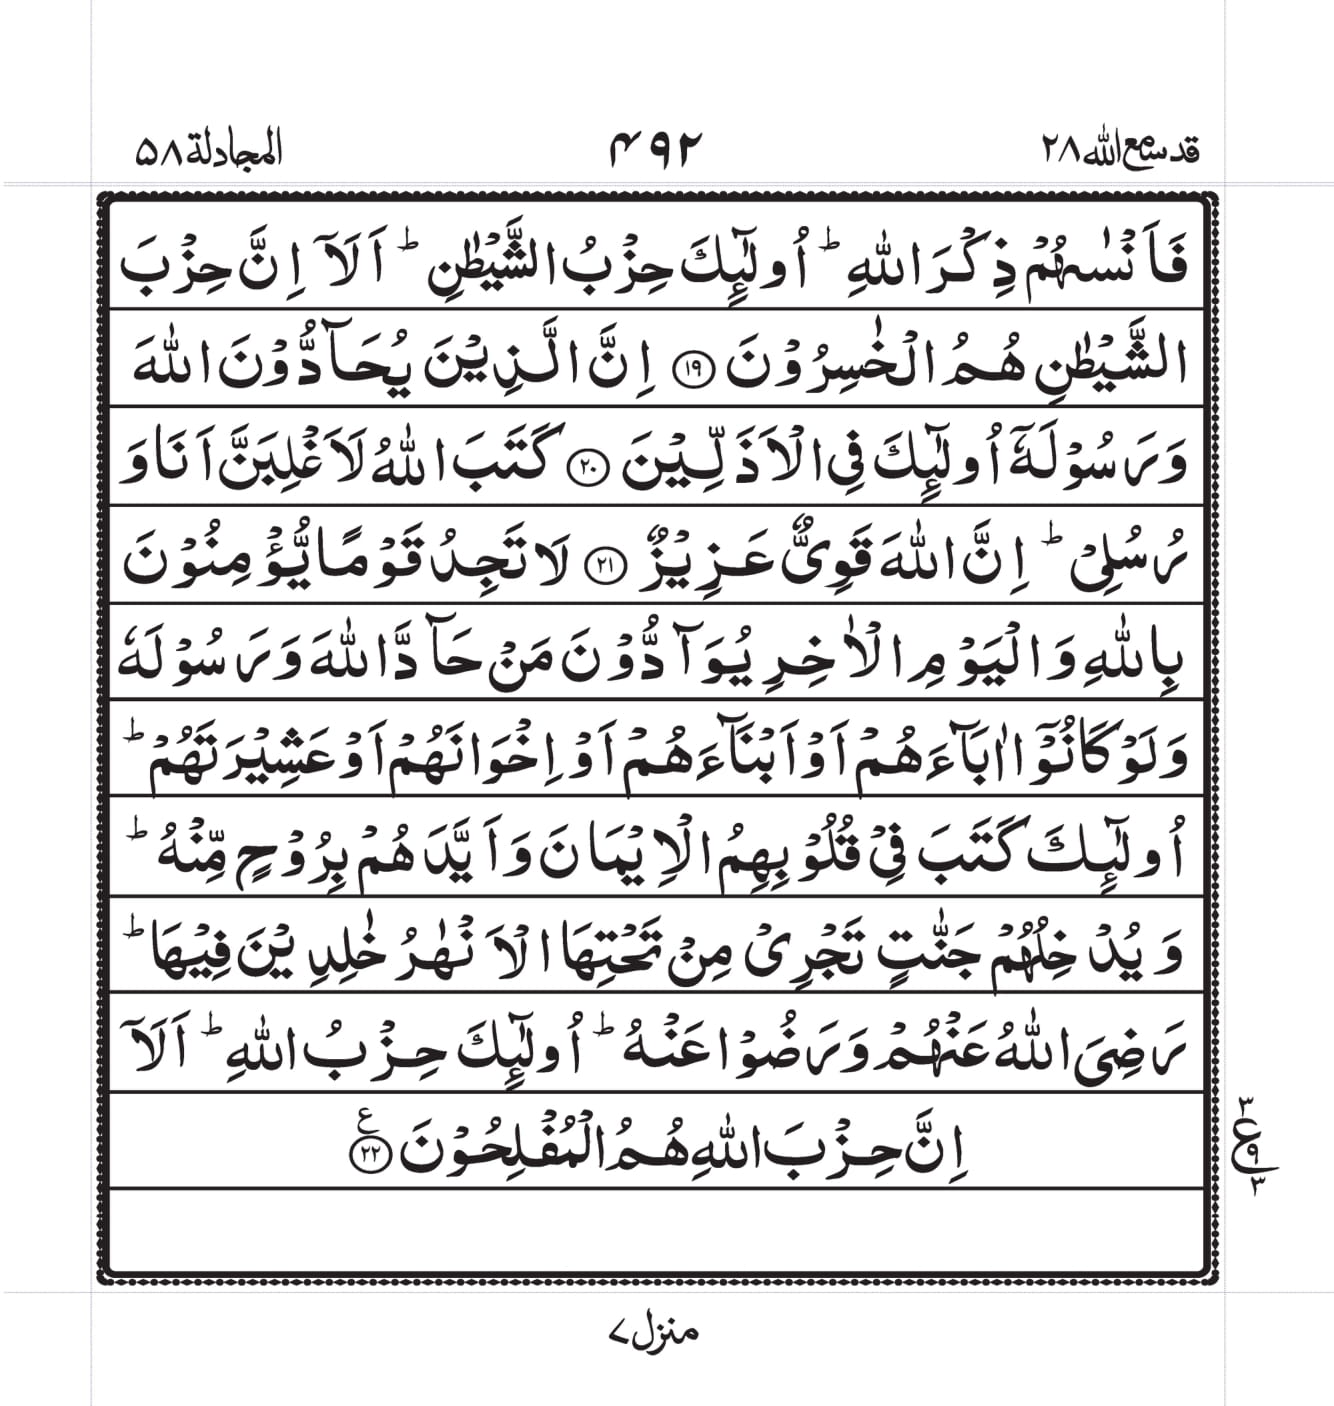 قد سمع الله ٢٨
۴۹۲
المجادلة ۵٨
فَاَنۡسٰىهُمۡ ذِكۡرَ اللّٰهِ ؕ اُولٰٓئِكَ حِزۡبُ الشَّيۡطٰنِ ؕ اَلَاۤ اِنَّ حِزۡبَ
الشَّيۡطٰنِ هُمُ الۡخٰسِرُوۡنَ ﴿۱۹﴾ اِنَّ الَّذِيۡنَ يُحَآدُّوۡنَ اللّٰهَ
وَرَسُوۡلَهٗۤ اُولٰٓئِكَ فِى الۡاَذَلِّيۡنَ ﴿۲۰﴾ كَتَبَ اللّٰهُ لَاَغۡلِبَنَّ اَنَا وَ
رُسُلِىۡ ؕ اِنَّ اللّٰهَ قَوِىٌّ عَزِيۡزٌ ﴿۲۱﴾ لَا تَجِدُ قَوۡمًا يُّؤۡمِنُوۡنَ
بِاللّٰهِ وَالۡيَوۡمِ الۡاٰخِرِ يُوَآدُّوۡنَ مَنۡ حَآدَّ اللّٰهَ وَرَسُوۡلَهٗ
وَلَوۡ كَانُوۡۤا اٰبَآءَهُمۡ اَوۡ اَبۡنَآءَهُمۡ اَوۡ اِخۡوَانَهُمۡ اَوۡ عَشِيۡرَتَهُمۡ ؕ
اُولٰٓئِكَ كَتَبَ فِىۡ قُلُوۡبِهِمُ الۡاِيۡمَانَ وَاَيَّدَهُمۡ بِرُوۡحٍ مِّنۡهُ ؕ
وَيُدۡخِلُهُمۡ جَنّٰتٍ تَجۡرِىۡ مِنۡ تَحۡتِهَا الۡاَنۡهٰرُ خٰلِدِيۡنَ فِيۡهَا ؕ
رَضِىَ اللّٰهُ عَنۡهُمۡ وَرَضُوۡا عَنۡهُ ؕ اُولٰٓئِكَ حِزۡبُ اللّٰهِ ؕ اَلَاۤ
اِنَّ حِزۡبَ اللّٰهِ هُمُ الۡمُفۡلِحُوۡنَ ﴿۲۲﴾ ع
٣
ع
٩
٣
منزل ٧